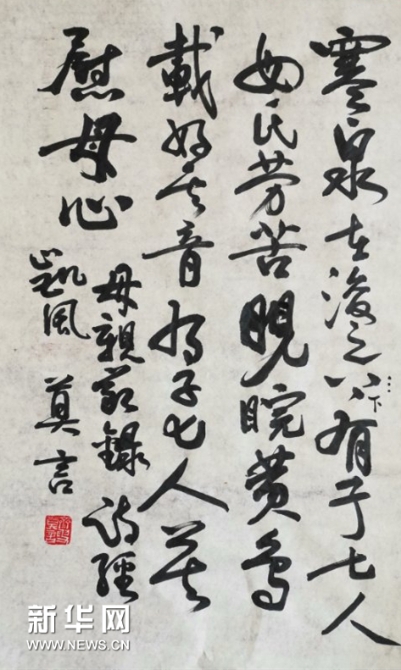 寒泉在浚之八下有子七人
母氏劳苦睍睆黄鳥
載好其音有子七人莫
慰母心
母親節錄诗經
凱風 莫言
新华网
WWW.NEWS.CN